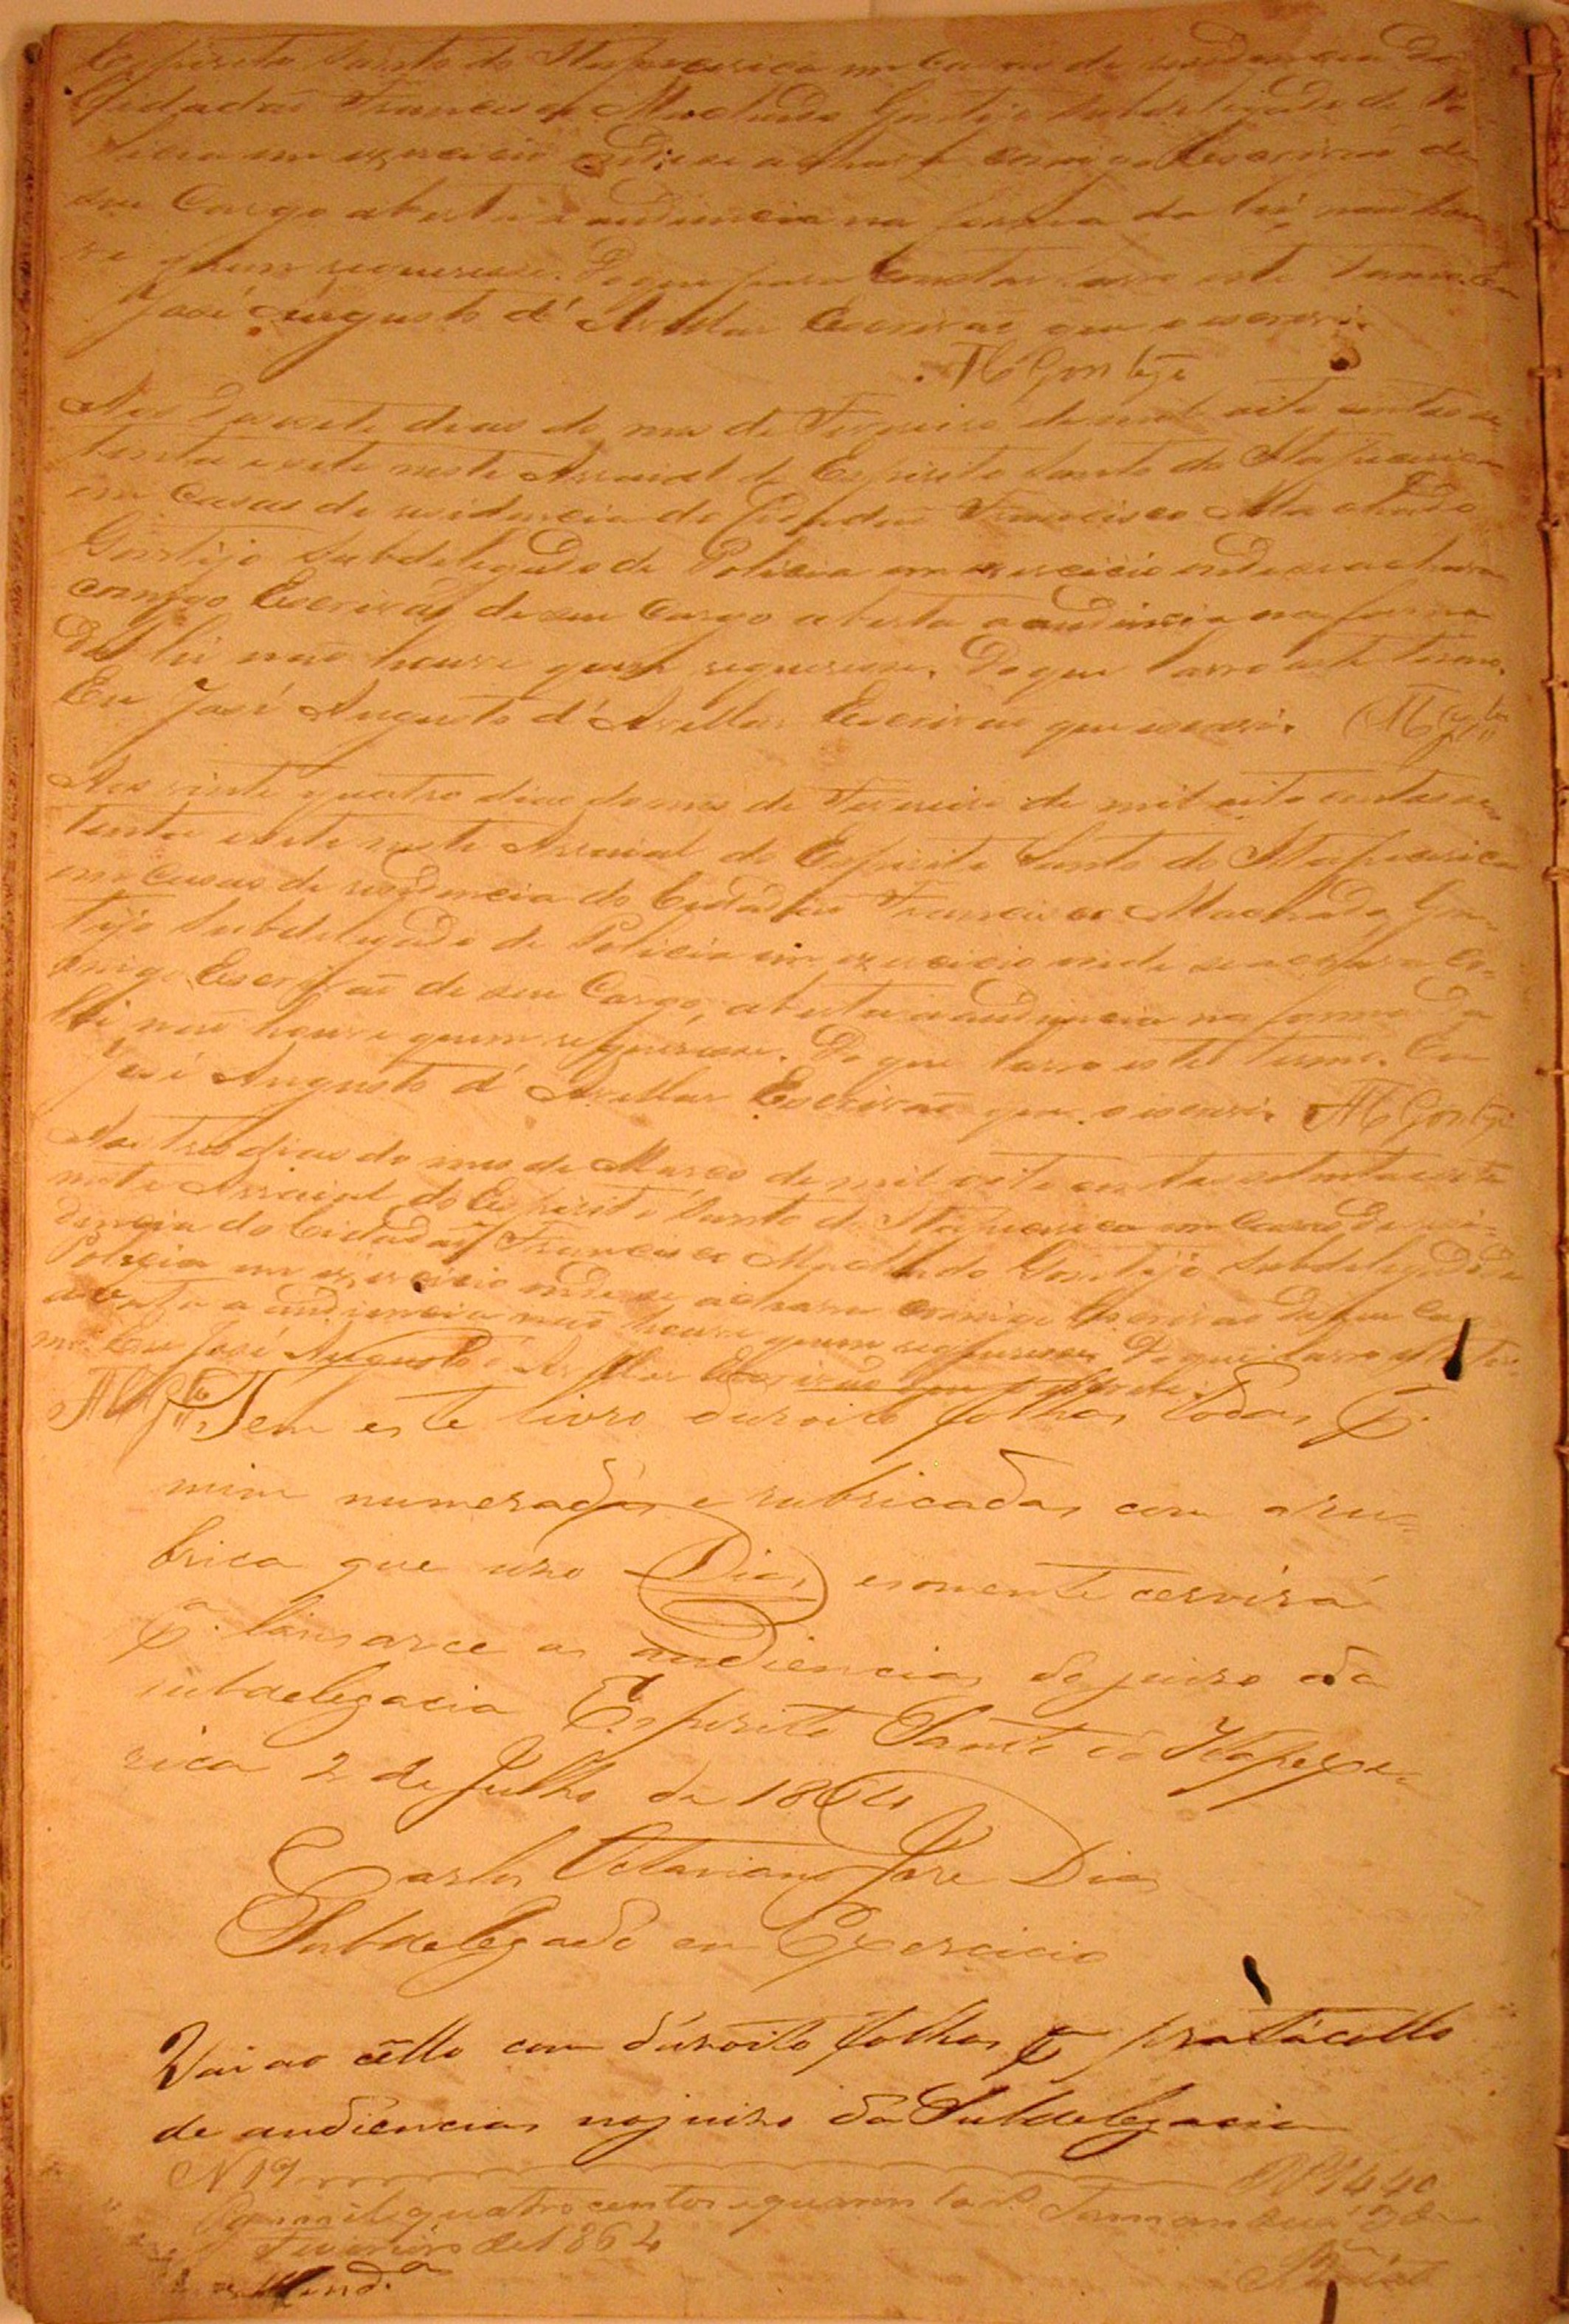 Espirito Santo do Itapecerica em Casas de residencia do
Cidadaõ Francisco Machado Gontijo Subdelegado de Po
licia em exercicio onde se achava comigo Escrivaõ de
seu Cargo aberta a audiencia na forma da lei, naõ hou
ve quem requeresse. Do que para Constar lavro este termo. Eu
José Augusto d'Avellar Escrivaõ que o escrevi.
M Gontijo
Aos desesete dias do mes de Fevereiro de mil oito centos se
tenta e sete neste Arraial do Espirito Santo do Itapecerica
em Casas de residencia do Cidadaõ Francisco Machado
Gontijo Subdelegado de Policia em exercicio onde se achava
comigo Escrivaõ de seu Cargo aberta a audiencia na forma
da lei naõ houve quem requeresse. Do que lavro este termo.
Eu José Augusto d'Avellar Escrivaõ que escrevi.
Aos vinte quatro dias do mes de Fevereiro de mil oito centos se
tenta e sete neste Arraial do Espirito Santo do Itapecerica
em Casas de residencia do Cidadaõ Francisco Machado Gon
tijo Subdelegado de Policia em exercicio onde se achava Co
migo Escrivaõ de seu Cargo, aberta a audiencia na forma da
lei naõ houve quem requeresse. Do que lavro este termo. Eu
José Augusto d'Avellar Escrivaõ que o escrevi. M Gontijo
Aos tres dias do mes de Março de mil oito centos setenta e sete
neste Arraial do Espirito Santo do Itapecerica em Casas de resi=
dencia do Cidadaõ Francisco Machado Gontijo Subdelegado de
Policia em exercicio onde se achava comigo Escrivaõ de seu Cargo
aberta a audiencia naõ houve quem requeresse. Do que lavro este ter=
mo. Eu José Augusto d'Avellar Escrivaõ que o escrevi.
Tem este livro dusoito folhas todas p.
mim numeradas e rubricadas com a ru=
brica que uso Dias e somente cervirá
p.ª lansarce as audiencias do juizo da
subdelegacia Espirito Santo do Itapece=
rica 2 de Julho de 1864
Carlos Octaviano José Dias
Subdelegado em Exercicio
Vai ao cello com dusoito folhas pª protácollo
de audiencias no juizo da Subdelegacia
N 19 1440
Pg. mil e quatro centos e quarenta rs. Tamanduá 3 de
de 1864